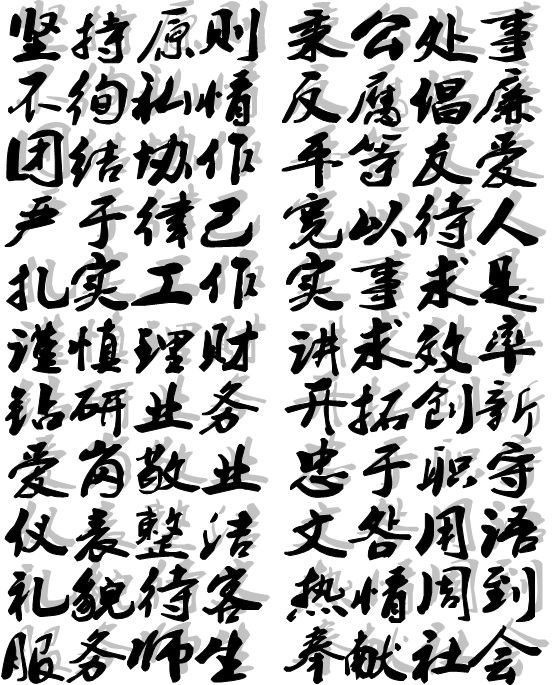 坚持原则 秉公处事
不徇私情 反腐倡廉
团结协作 平等友爱
严于律己 宽以待人
扎实工作 实事求是
谨慎理财 讲求效率
钻研业务 开拓创新
爱岗敬业 忠于职守
仪表整洁 文明用语
礼貌待客 热情周到
服务师生 奉献社会